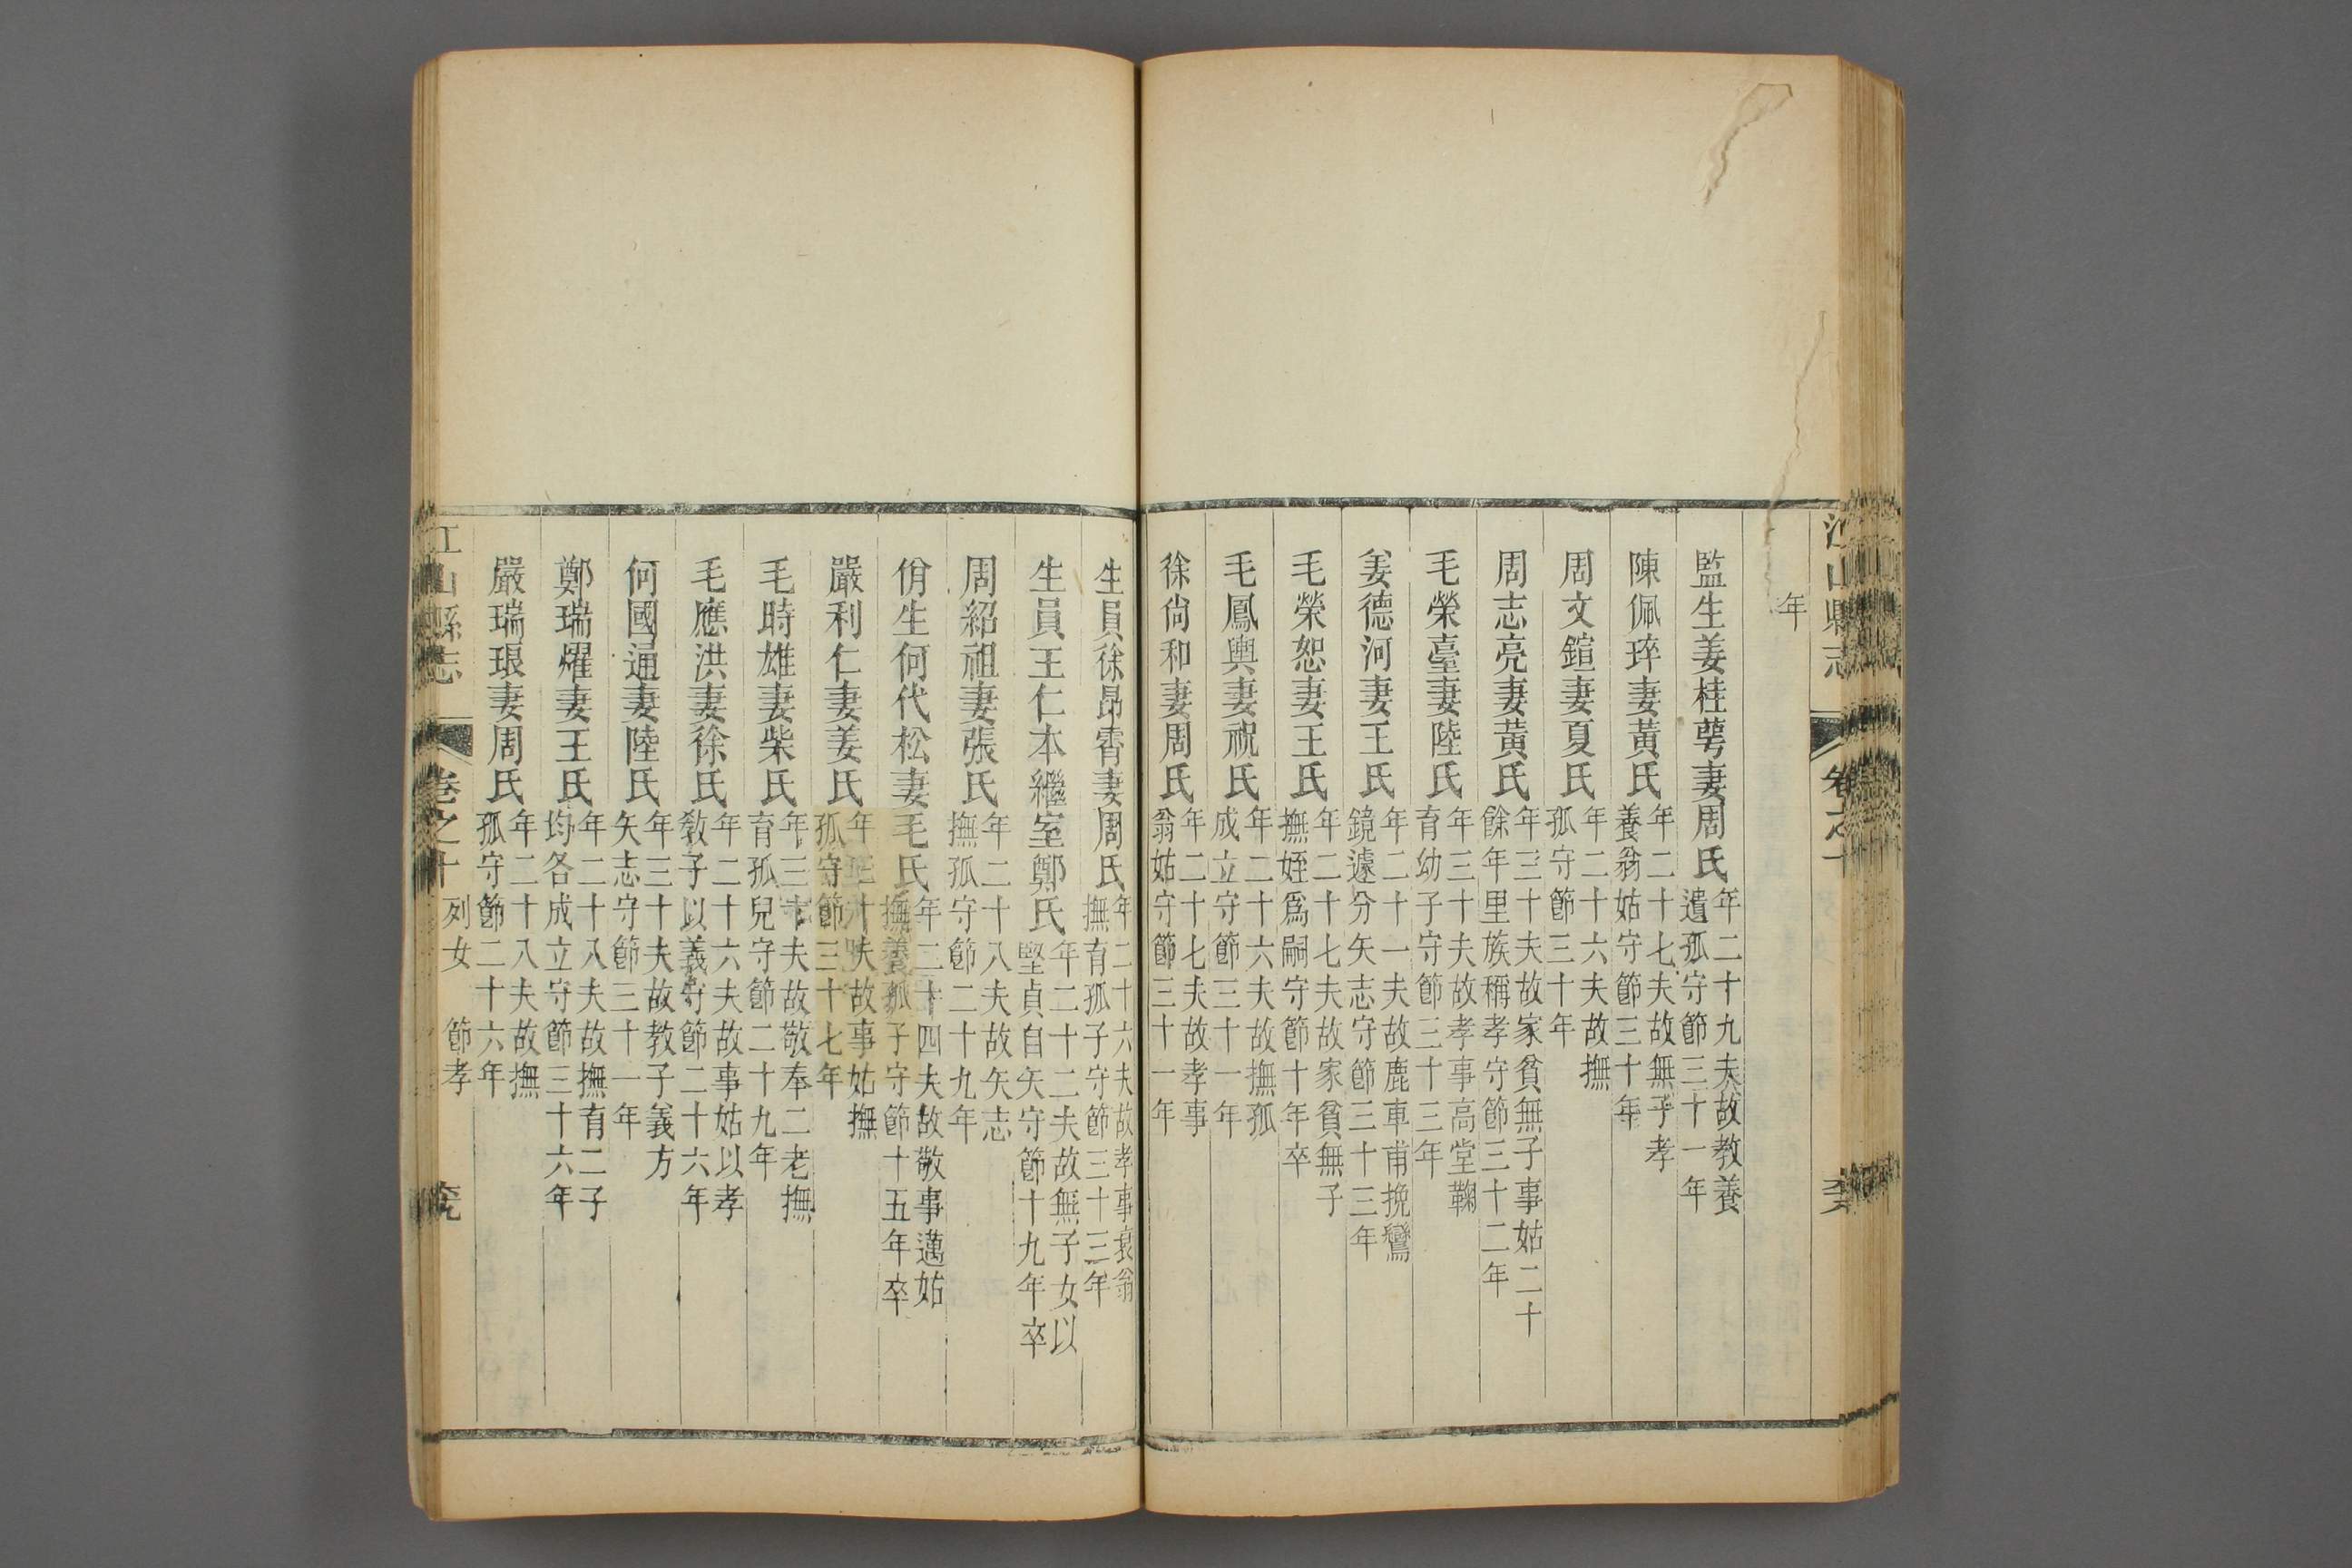 江山縣志 卷之十
年
監生姜桂萼妻周氏 年二十九夫故教養遺孤守節三十一年
陳佩琗妻黃氏 年二十七夫故無子孝養翁姑守節三十年
周文鍹妻夏氏 年二十六夫故撫孤守節三十年
周志亮妻黃氏 年三十夫故家貧無子事姑二十餘年里族稱孝守節三十二年
毛榮臺妻陸氏 年三十夫故孝事高堂鞠育幼子守節三十三年
姜德河妻王氏 年二十一夫故鹿車甫挽鸞鏡遽分矢志守節三十三年
毛榮恕妻王氏 年二十七夫故家貧無子撫姪爲嗣守節十年卒
毛鳳輿妻祝氏 年二十六夫故撫孤成立守節三十一年
徐尙和妻周氏 年二十七夫故孝事翁姑守節三十一年
生員徐昻霄妻周氏 年二十六夫故孝事衰翁撫育孤子守節三十三年
生員王仁本繼室鄭氏 年二十二夫故無子女以堅貞自矢守節十九年卒
周紹祖妻張氏 年二十八夫故矢志撫孤守節二十九年
佾生何代松妻毛氏 年二十四夫故敬事邁姑撫養孤子守節十五年卒
嚴利仁妻姜氏 年 夫故事姑撫孤守節三十七年
毛時雄妻柴氏 年三十夫故敬奉二老撫育孤兒守節二十九年
毛應洪妻徐氏 年二十六夫故事姑以孝敎子以義守節二十六年
何國通妻陸氏 年三十夫故教子義方矢志守節三十一年
鄭瑞燿妻王氏 年二十八夫故撫育二子均各成立守節三十六年
嚴瑞琅妻周氏 年二十八夫故撫孤守節二十六年
江山縣志 卷之十 列女 節孝